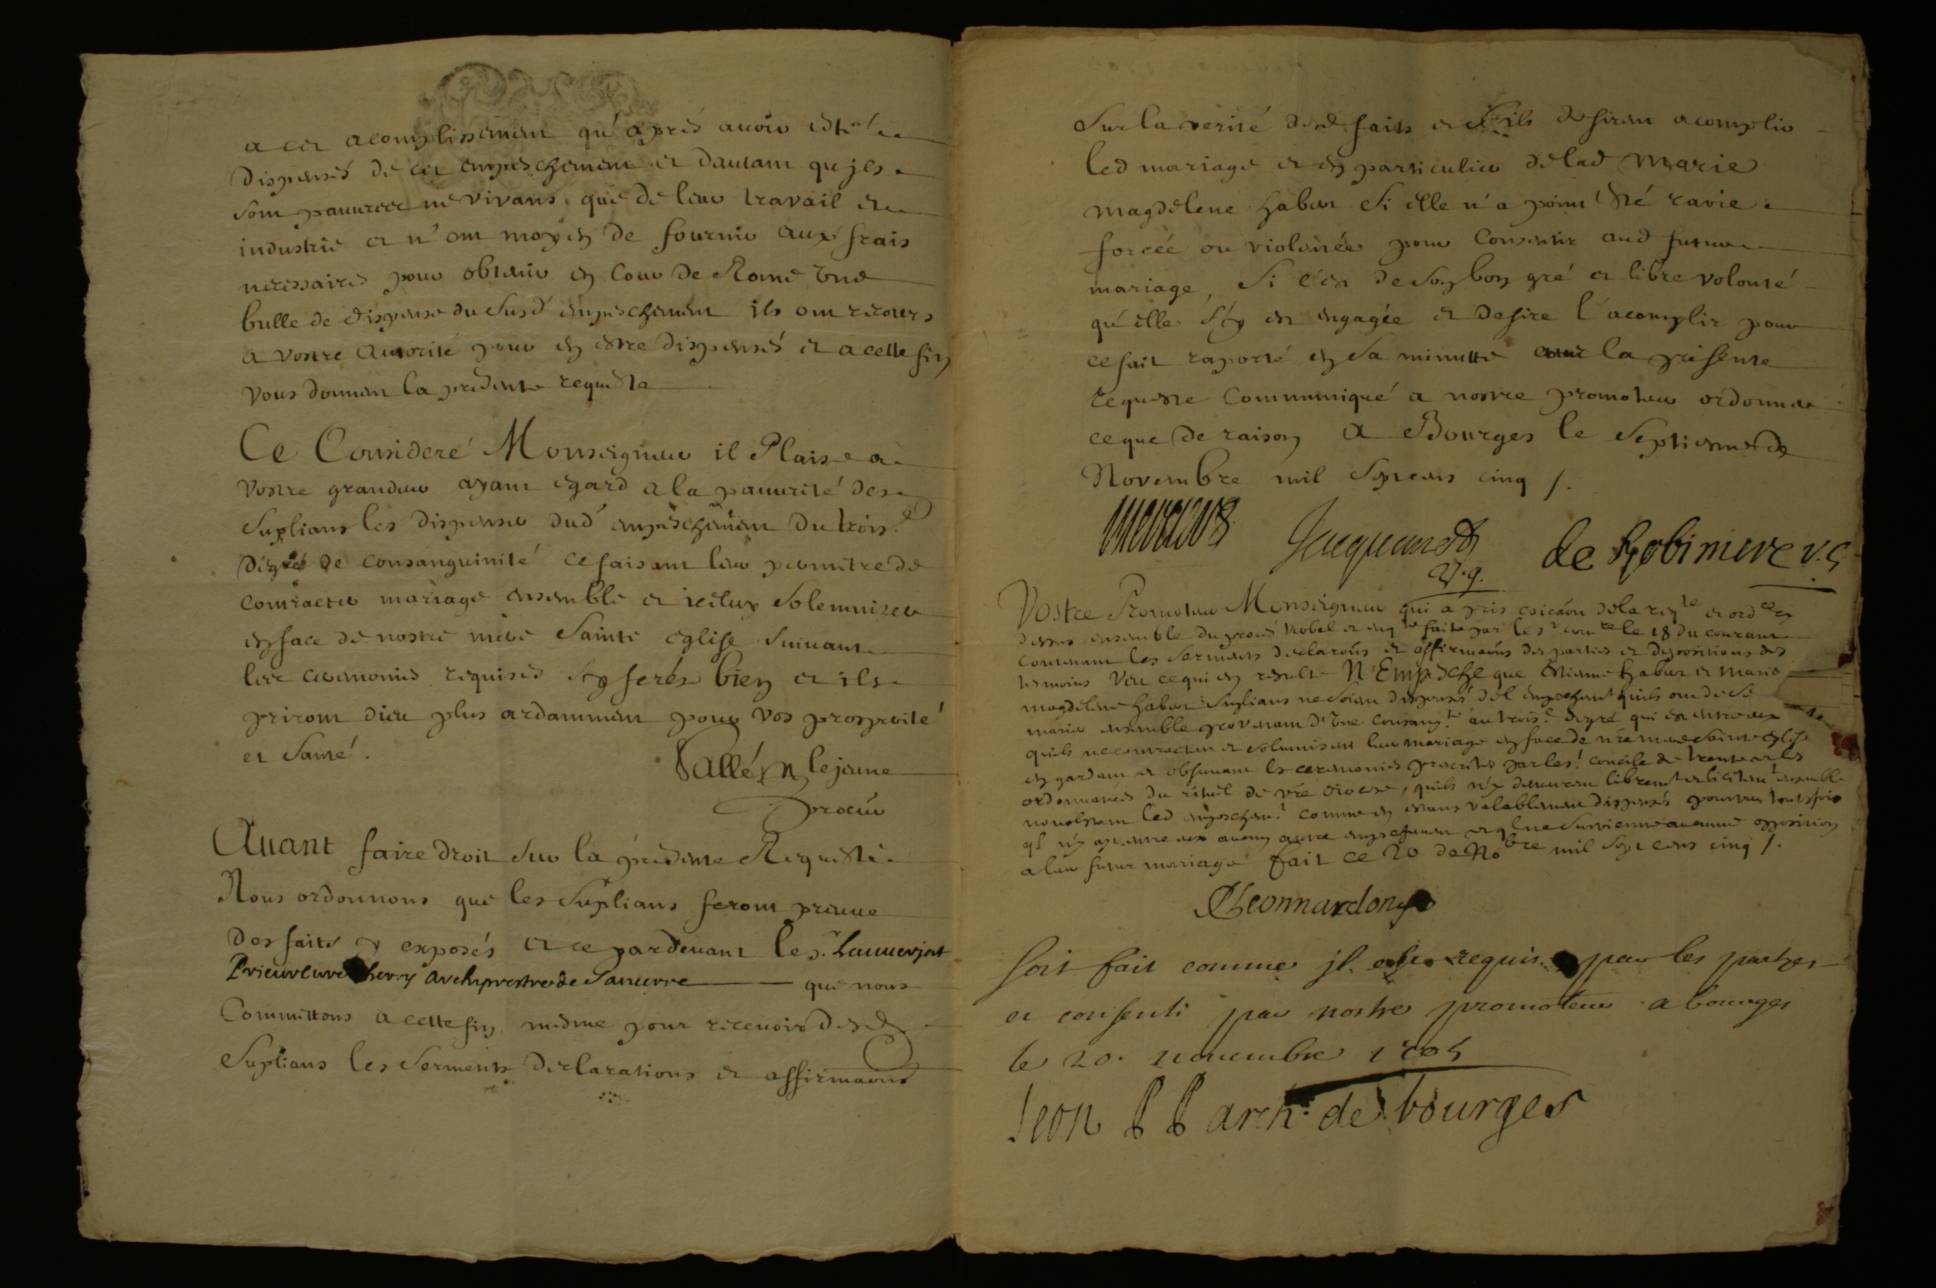 a cet acomplissement qu'aprés auoir esté
dispensés de cet empeschement et dautant qu jls
sont pauures ne vivans que de leur travail et
industrie et n'ont moyen de fournir aux frais
necessaires pour obtenir en Cour de Rome une
bulle de dispense du susd empeschement ils ont recours
a vostre autorité pour en estre dispensés et a cette fin
vous donnent la presente requeste
Ce Consideré Monseigneur il Plaise a
vostre grandeur ayant egard a la pauureté des
suplians les dispenser dud empeschement du trois.e
degré de consanguinité ce faisant leur permetre de
contracter mariage ensemble et iceluy solemniser
en face de nostre mere Sainte eglise suiuant
les ceremonies requises et ferés bien et ils
priront dieu plus ardamment pour vos prosperité
et santé.
lejeune
procur
Auant faire droit sur la presente Requeste
Nous ordonnons que les suplians feront preuue
des faits y exposés et ce pardeuant le s.r
Prieur curé archiprestre de Sancerre que nous
Committons a cette fin mesme pour receuoir desd
suplians les serments declarations et affirmaons
Sur la verité desd faits et s'ils desirent acomplir
led mariage et en particulier de lad Marie
magdelene habert si elle n'a point été ravie
forcée ou violentée pour consentir aud futur
mariage, si c'est de son bon gré et libre volonté
qu'elle s'y est engagée et desire l'acomplir pour
ce fait raporté en sa minutte la presente
requeste communiqué a nostre promoteur ordonner
ce que de raison a Bourges le septieme de
Novembre mil sept cens cinq /.
v.g.
de Gobimere v.G
Vostre Promoteur Monseigneur qui a pris de la req.te et ord.ce
dessus ensemble du proces verbal et enq.te faite par le s.r le 18 du courant
contenant les serments declaraons et affirmaons des parties et depositions des
tesmoins veu ce qui en resulte N'Empesche que Estienne habert et Marie
magdelene habert suplians ne soient dispensés de l'empeschemt quils ont de se
marier ensemble prouenant d'une consang.té au trois.e degré qui est entre eux
quils ne contractent et solemnisent leur mariage en face de n're mere Sainte eglise
en gardant et obseruant les ceremonies prescrites par le s.t concile de trente et les
ordonnances du rituel de v're diocese, quils n'y demeurent librement et licitemt ensemble
nonobstant led empeschem.t comme en estans valablement dispensés pourveu toutesfois
ql n'y ayt entre eux aucun autre empeschement et ql ne suruienne aucune opposition
a leur futur mariage fait ce 20 de No.bre mil sept cens cinq /.
soit fait comme jl est requis par les parties
et consenti par nostre promoteur a bourges
le 20. nouembre 1705
leon P P arch. de bourges